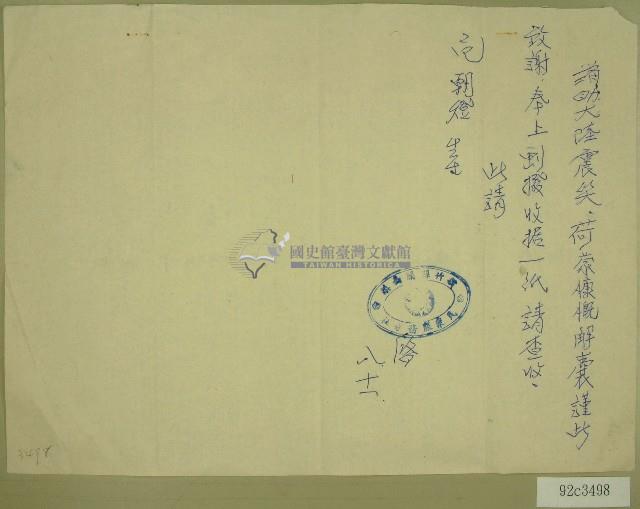 捐助大陸震災,荷蒙慷慨解囊謹此
致謝,奉上劃撥收据一紙請查收,
此請
朝燈 先生
八、十一
國史館臺灣文獻館
TAIWAN HISTORICA
3498
92c3498